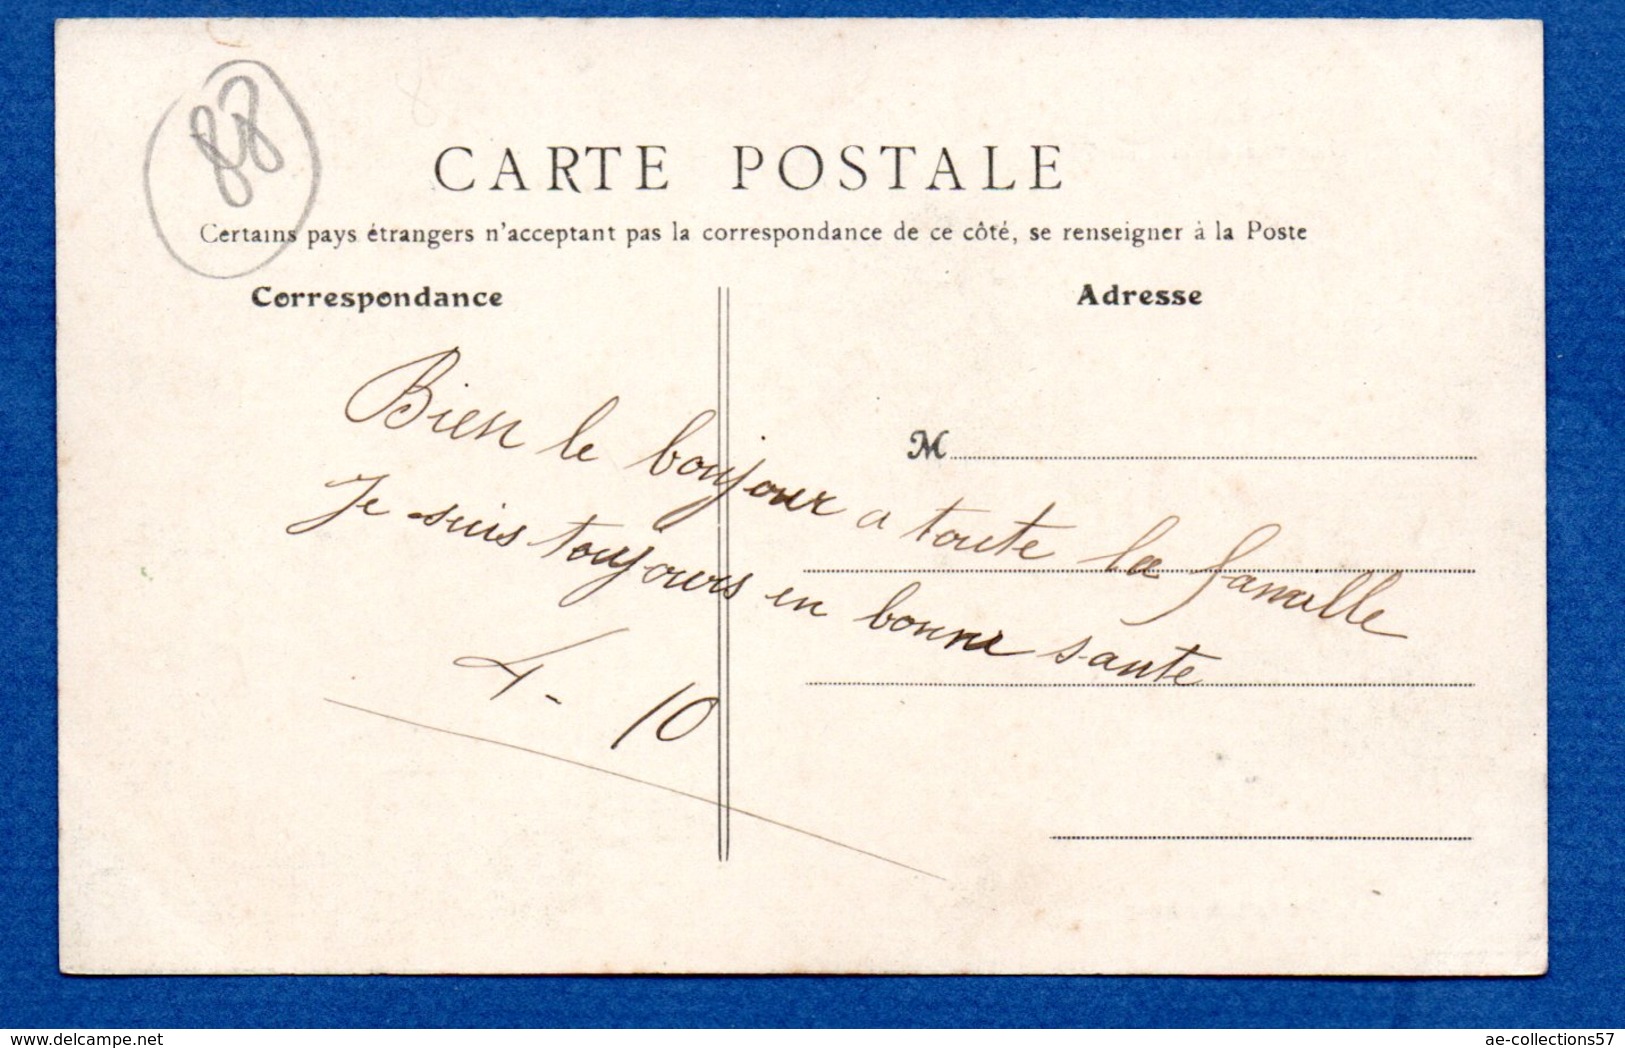 88
CARTE POSTALE
Certains pays étrangers n'acceptant pas la correspondance de ce côté, se renseigner à la Poste
Correspondance
Adresse
M
Bien le boujour a toute la famille
Je suis toujours en bonne sante
4 - 10
www.delcampe.net
ae-collections57